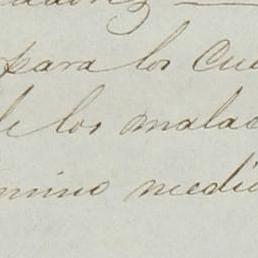 para los cua
de los malac
mino medio